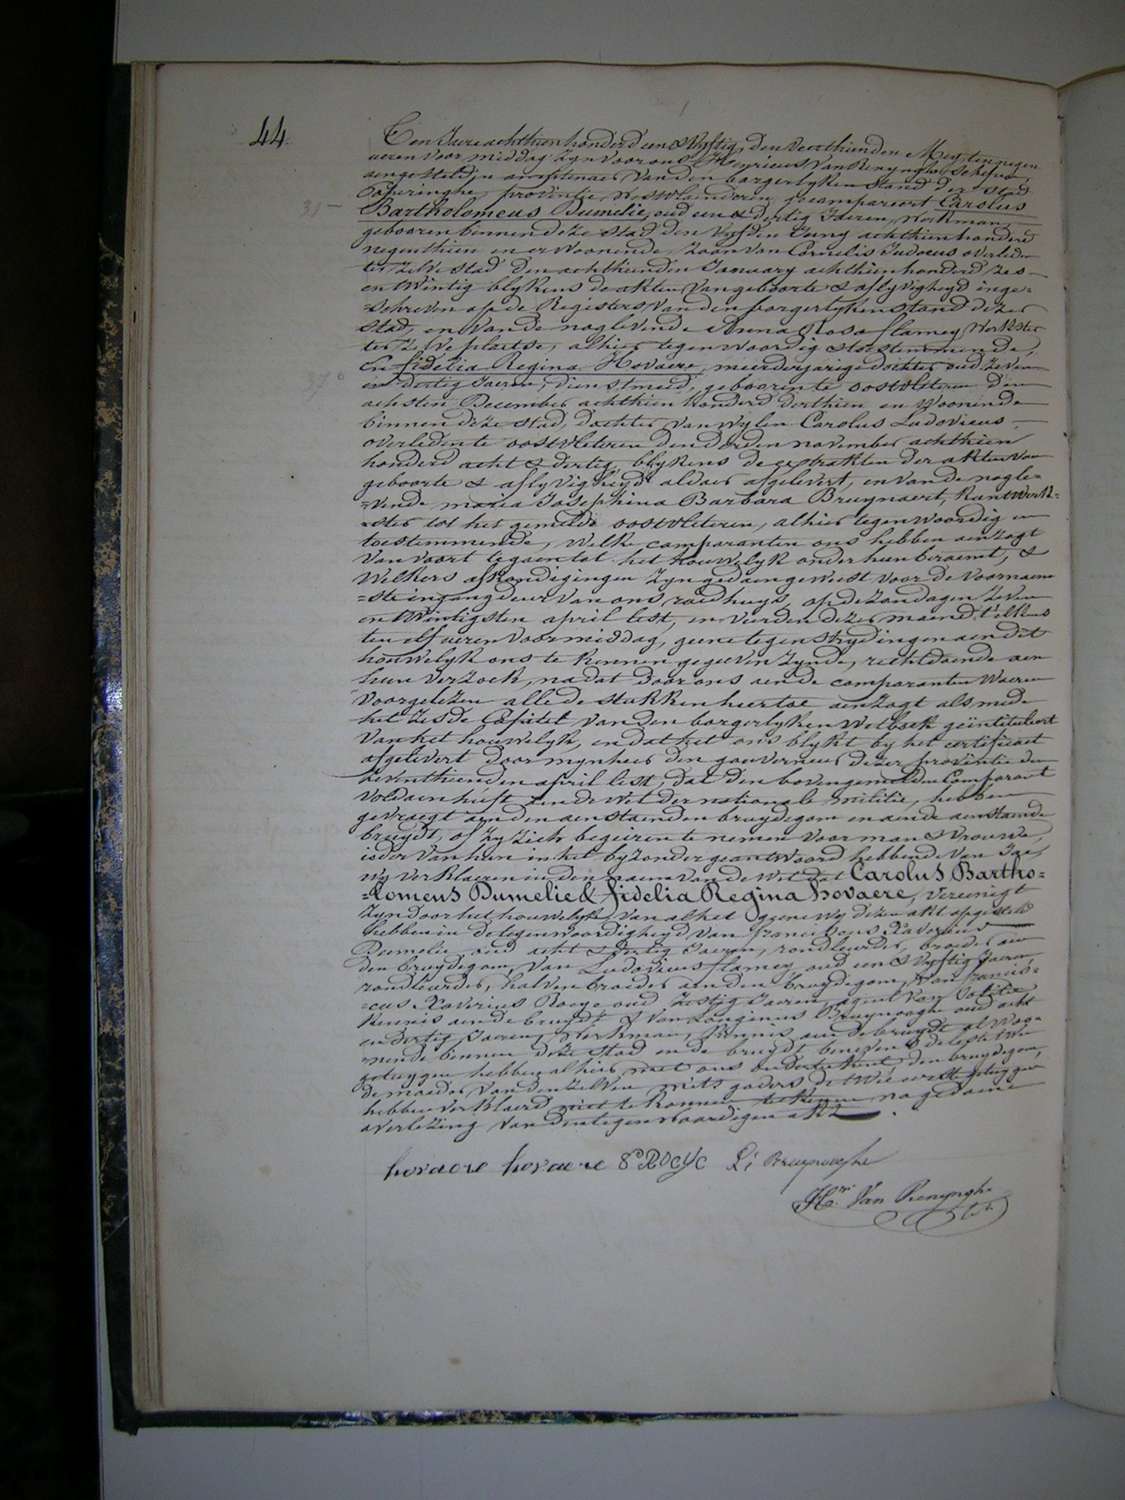 44.
Ten Jaere achthien honderd een & vyftig, den veerthienden Mey, ten negen
ueren voor middag, zyn voor ons Henricus Van Renynghe, Schepen
aengestelden amptenaer van den borgerlyken Stand der stad
Poperinghe, provintie Westvlaenderen, gecompareert Carolus
31
Bartholomeus Dumelie, oud een & dertig Jaeren, werkman,
gebooren binnen deze stad den vyfden Juny achthien honderd
negenthien en er woonende, zoon van Cornelis Judocus overleden
ter zelve stad den achthienden January achthien honderd zes-
en twintig blykens de akten van geboorte & aflyvigheyd inge=
=schreven op de Registers van den borgerlyken stand dezer
stad, en van de noglevende Anna Rosa flamey, werkster
ter zelve plaetse, alhier tegenwoordig & toestemmende,
En fidelia Regina Hovaere, meerderjarige dochter oud zeven
37
en dertig Jaeren, dienstmeid, gebooren te oostvleteren den
achsten December achthien honderd derthien en woonende
binnen deze stad, dochter van wylen Carolus Ludovicus,
overleden te oostvleteren den derden november achthien
honderd acht & dertig, blykens de extrakten der akten van
geboorte & aflyvigheyd aldaer afgelevert, en van de nogle=
=vende maria Josephina Barbara Bruynaert, kantwerk=
=ster tot het gemelde oostvleteren, alhier tegenwoordig en
toestemmende, welke comparanten ons hebben aenzogt
van voort te gaen tot het houwelyk onder hun beraemt, &
welkers afkondigingen zyn gedaen geweest voor de voornaem
=ste ingangdeur van ons raedhuys op de zondagen zeven
en twintigsten april lest, en vierden dezer maend, telkens
ten elf ueren voormiddag, geene tegenstrydingen aen dit
houwelyk ons te kennen gegeven zynde, rechtdoende aen
hun verzoek, nadat door ons aen de comparanten waeren
voorgelezen alle de stukken hiertoe aenzogt alsmede
het zesde Capittel van den borgerlyken wetboek geïntituleert
van het houwelyk, en dat het ons blykt by het certificaet
afgelevert door mynheer den gouverneur dezer provintie den
zeventhienden april lest, dat den bovengemelden Comparant
voldaen heeft aen de wet der nationale militie, hebben
gevraegt aen den aenstaenden bruydegom en aen de aenstaende
bruydt, of zy zich begeiren te nemen voor man & vrouwe,
ieder van hen in het byzonder geantwoord hebbende van Ja,
wy verklaeren in den naem van de wet dat Carolus Bartho=
=lomeus Dumelie & fidelia Regina hovaere, vereenigt
zyn door het houwelyk, van al het gene wy dezen akt opgesteld
hebben in de tegenwoordigheyd van franciscus Xaverius
Dumelie, oud acht & dertig Jaeren, rondleurder, broeder aen
den bruydegom, van Ludovicus flamey, oud een & vyftig Jaeren,
rondleurder, halven broeder aen den bruydegom, van francis=
=cus Xaverius Roeye oud zestig Jaeren, agent van Politie,
kennis aen de bruydt & van Longinus Bruynooghe oud acht
en dertig Jaeren, werkman, kennis aen de bruydt al woo=
=nende binnen deze stad en de bruydt benevens de leste twee
getuygen hebben alhier met ons onderteekent, den bruydegom,
de moeder van den zelven mitsgaders de twee eerste getuygen
hebben verklaerd niet te konnen teekenen na gedaene
overlezing van den tegenwoordigen akt.
hovaere hovaere Roeye L: Bruynooghe
H.ri Van Renynghe